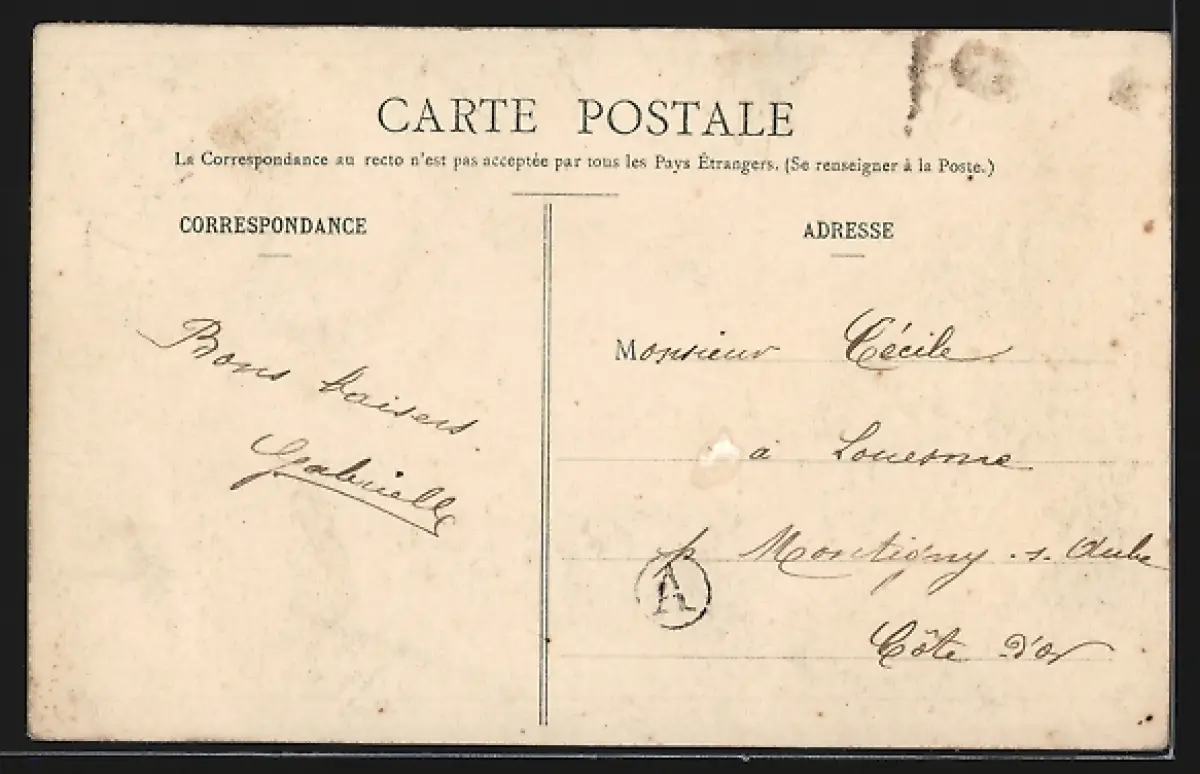 CARTE POSTALE
La Correspondance au recto n'est pas acceptée par tous les Pays Étrangers. (Se renseigner à la Poste.)
CORRESPONDANCE
Bons baisers
Gabrielle
ADRESSE
Monsieur Cécile
à Louesme
p Montigny .s. Aube
A
Côte d'Or